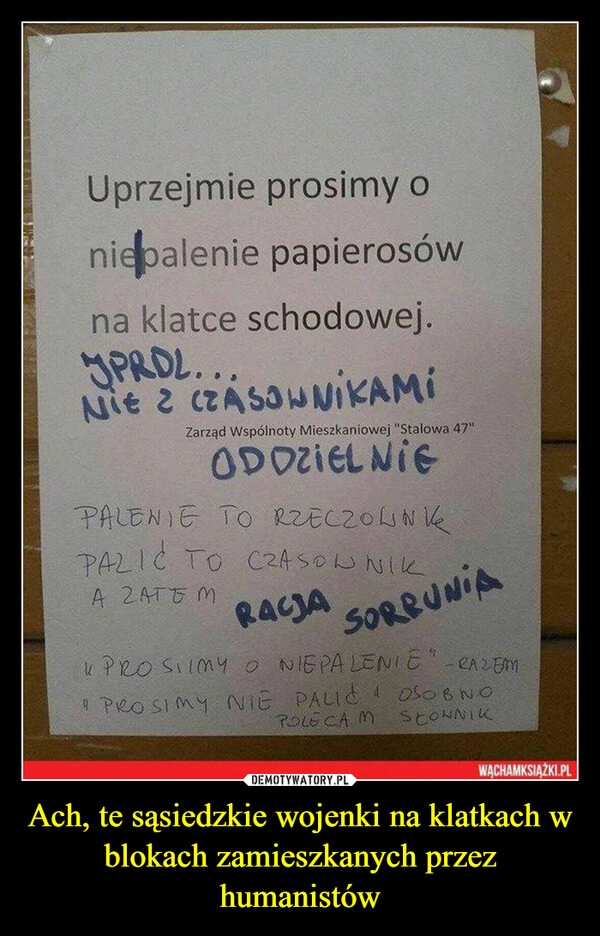 Uprzejmie prosimy o
niepalenie papierosów
na klatce schodowej.
JPRDL...
NiE Z CZASOWNiKAMi
Zarząd Wspólnoty Mieszkaniowej "Stalowa 47"
ODDZiELNiE
PALENIE TO RZECZOWNIK
PALIĆ TO CZASOWNIK
A ZATEM
RACJA SORRUNiA
"PROSIIMY O NIEPALENIE" - RAZEM
"PROSIMY NIE PALIĆ" OSOBNO
POLECAM SŁOWNIK
WĄCHAMKSIĄŻKI.PL
DEMOTYWATORY.PL
Ach, te sąsiedzkie wojenki na klatkach w
blokach zamieszkanych przez
humanistów